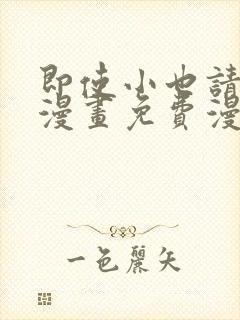 即使小也請
漫畫免費漫
一色麗矢